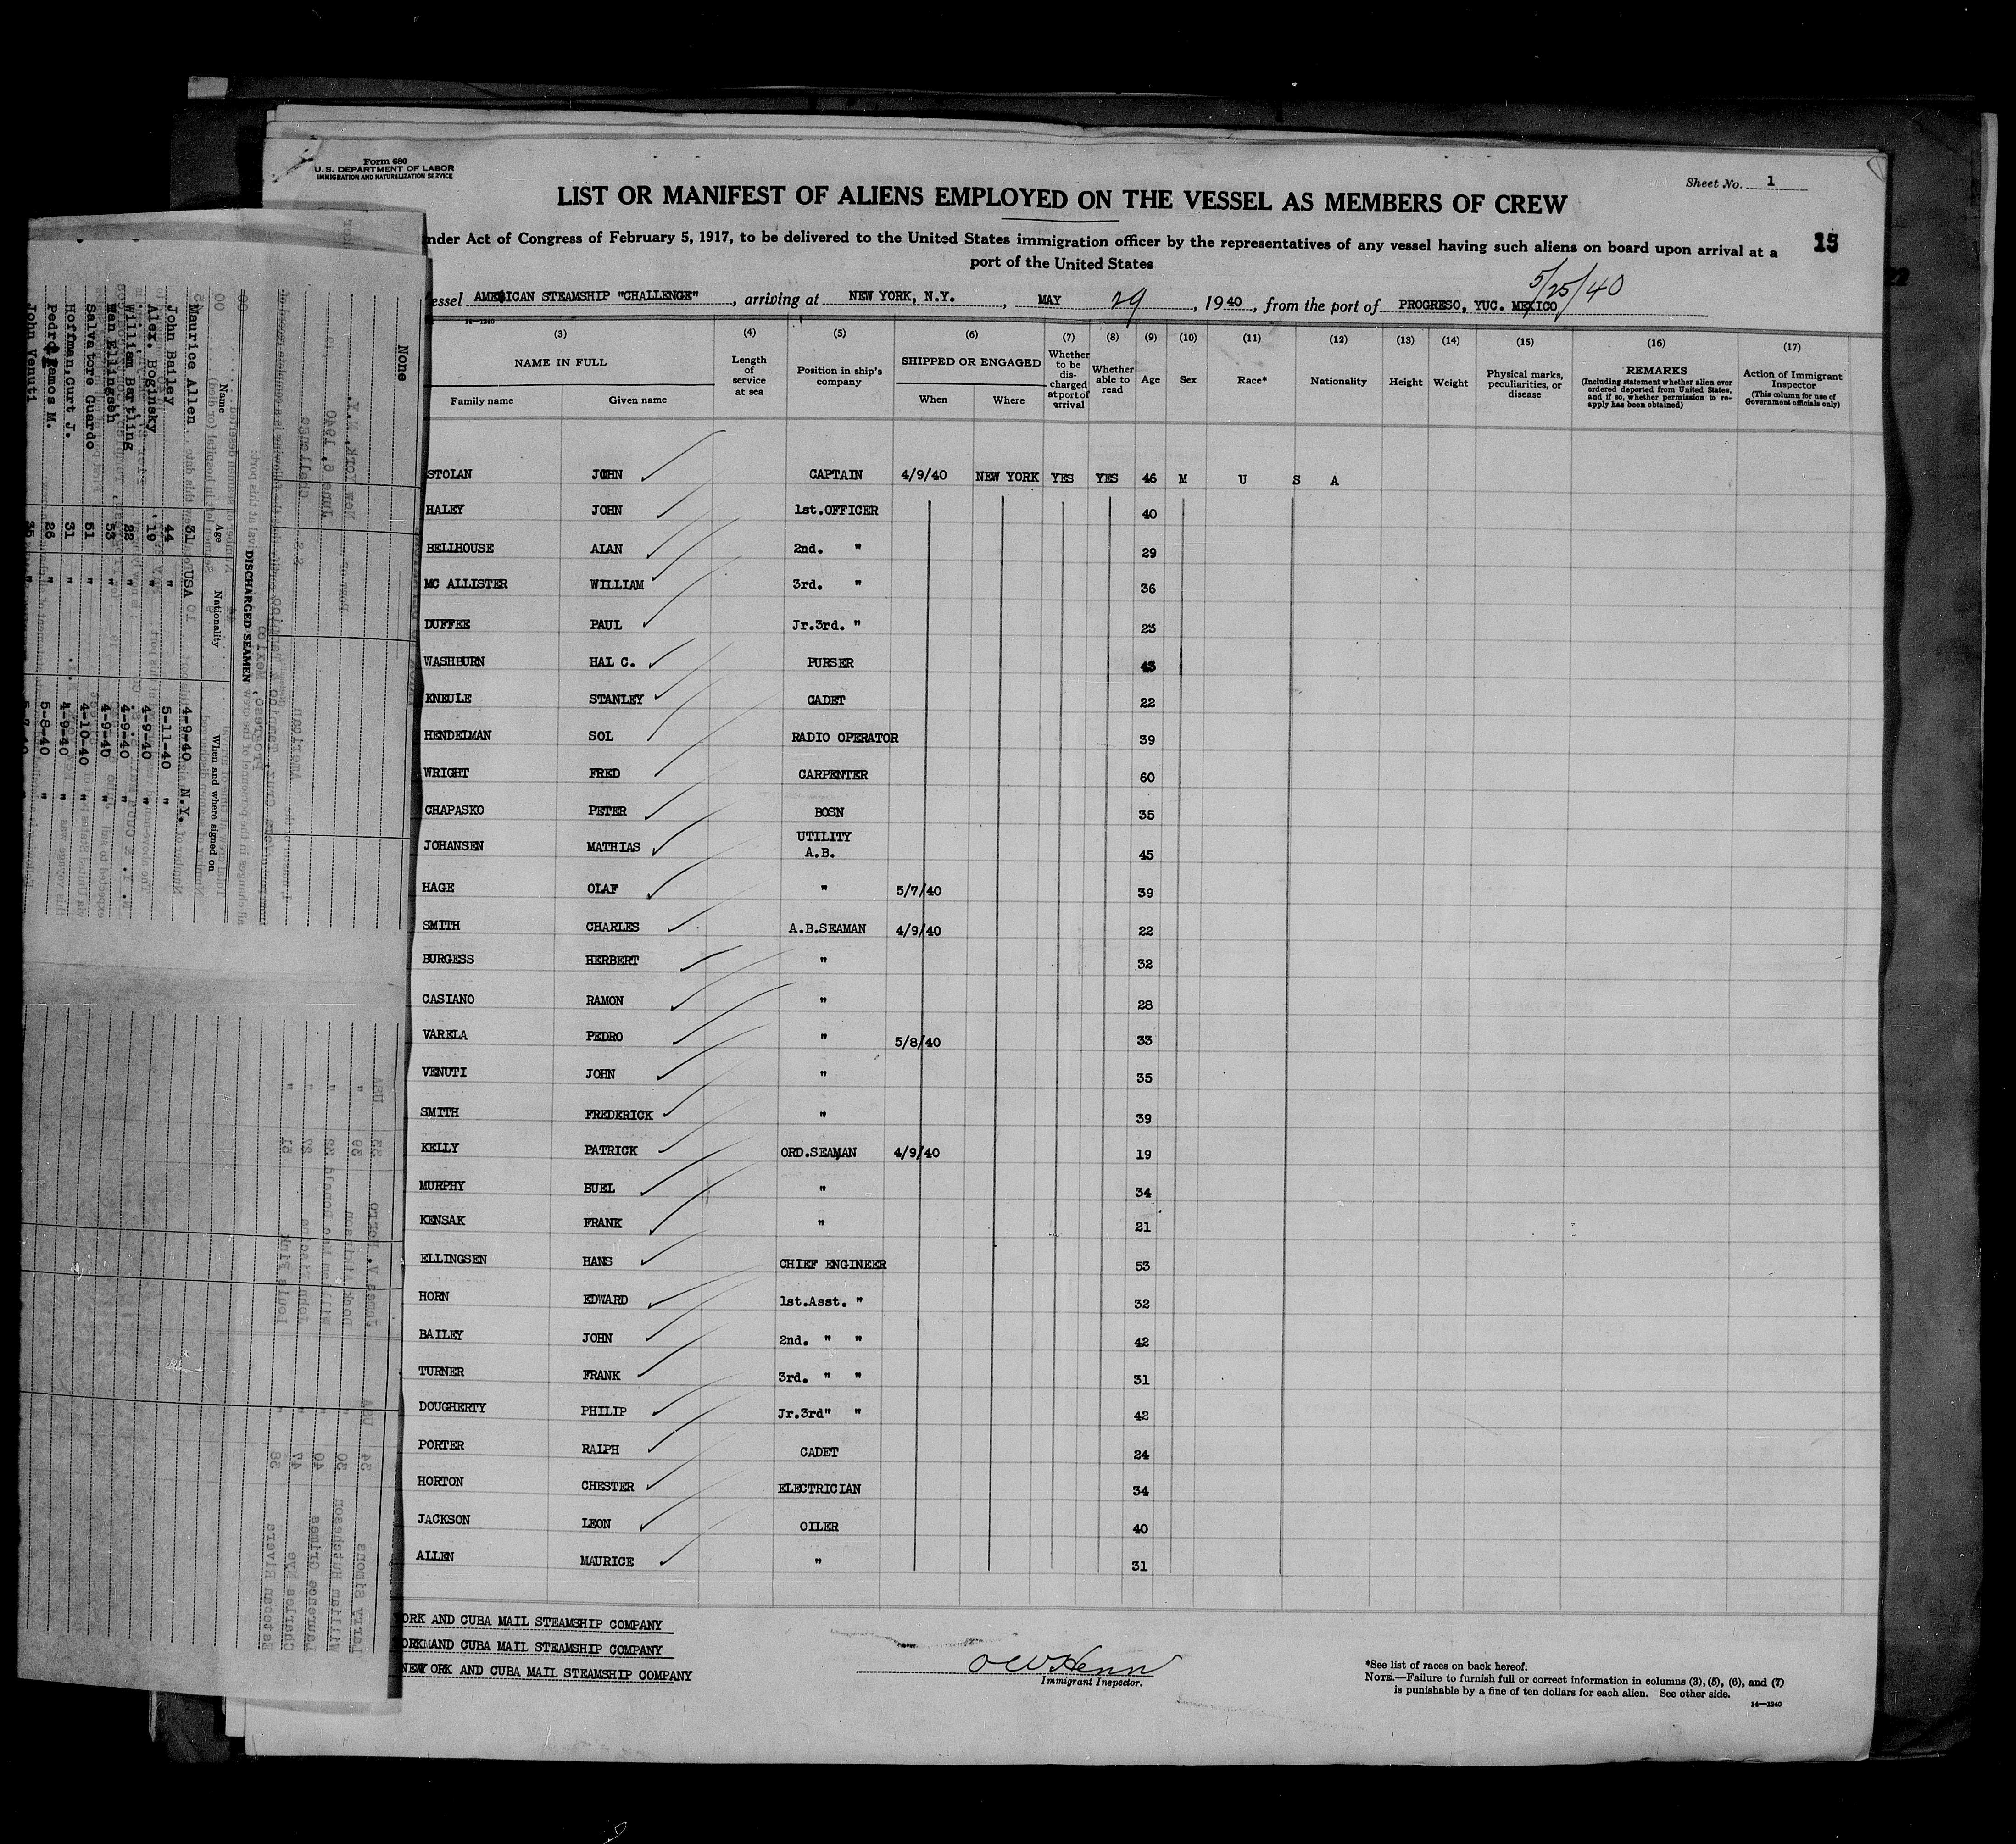 Form 680
U. S. DEPARTMENT OF LABOR
IMMIGRATION AND NATURALIZATION SERVICE
Sheet No. 1
LIST OR MANIFEST OF ALIENS EMPLOYED ON THE VESSEL AS MEMBERS OF CREW
15
nder Act of Congress of February 5, 1917, to be delivered to the United States immigration officer by the representatives of any vessel having such aliens on board upon arrival at a
port of the United States
5/25/40
essel AMERICAN STEAMSHIP "CHALLENGE" , arriving at NEW YORK, N.Y. , MAY 29 , 1940 , from the port of PROGRESO, YUC. MEXICO
14—1240
(3) (4) (5) (6) (7) (8) (9) (10) (11) (12) (13) (14) (15) (16) (17)
NAME IN FULL
Family name Given name
Length of service at sea
Position in ship's company
SHIPPED OR ENGAGED
When Where
Whether to be discharged at port of arrival
Whether able to read
Age
Sex
Race*
Nationality
Height
Weight
Physical marks, peculiarities, or disease
REMARKS
(Including statement whether alien ever ordered deported from United States, and if so, whether permission to reapply has been obtained)
Action of Immigrant Inspector
(This column for use of Government officials only)
STOLAN JOHN CAPTAIN 4/9/40 NEW YORK YES YES 46 M U S A
HALEY JOHN 1st.OFFICER 40
BELLHOUSE ALAN 2nd. " 29
MC ALLISTER WILLIAM 3rd. " 36
DUFFEE PAUL Jr.3rd. " 23
WASHBURN HAL C. PURSER 43
KNEULE STANLEY CADET 22
HENDELMAN SOL RADIO OPERATOR 39
WRIGHT FRED CARPENTER 60
CHAPASKO PETER BOSN 35
JOHANSEN MATHIAS UTILITY A.B. 45
HAGE OLAF " 5/7/40 39
SMITH CHARLES A.B.SEAMAN 4/9/40 22
BURGESS HERBERT " 32
CASIANO RAMON " 28
VARELA PEDRO " 5/8/40 33
VENUTI JOHN " 35
SMITH FREDERICK " 39
KELLY PATRICK ORD.SEAMAN 4/9/40 19
MURPHY BUEL " 34
KENSAK FRANK " 21
ELLINGSEN HANS CHIEF ENGINEER 53
HORN EDWARD 1st.Asst. " 32
BAILEY JOHN 2nd. " " 42
TURNER FRANK 3rd. " " 31
DOUGHERTY PHILIP Jr.3rd" " 42
PORTER RALPH CADET 24
HORTON CHESTER ELECTRICIAN 34
JACKSON LEON OILER 40
ALLEN MAURICE " 31
ORK AND CUBA MAIL STEAMSHIP COMPANY
ORK AND CUBA MAIL STEAMSHIP COMPANY
NEW YORK AND CUBA MAIL STEAMSHIP COMPANY
Immigrant Inspector.
*See list of races on back hereof.
NOTE.—Failure to furnish full or correct information in columns (3), (5), (6), and (7)
is punishable by a fine of ten dollars for each alien. See other side.
14—1240
None
DISCHARGED SEAMEN
Name Age Nationality When and where signed on
Maurice Allen 31 USA 4-9-40 N.Y.
John Bailey 44 " 5-11-40 "
Alex. Boginsky 19 " 4-9-40 "
William Bartling 22 " 4-9-40 "
53 " 4-9-40 "
Salvatore Guardo 51 " 4-10-40 "
Hoffman,Curt J. 31 " 4-9-40 "
Pedro Ramos M. 26 " 5-8-40 "
John Venuti 35 "